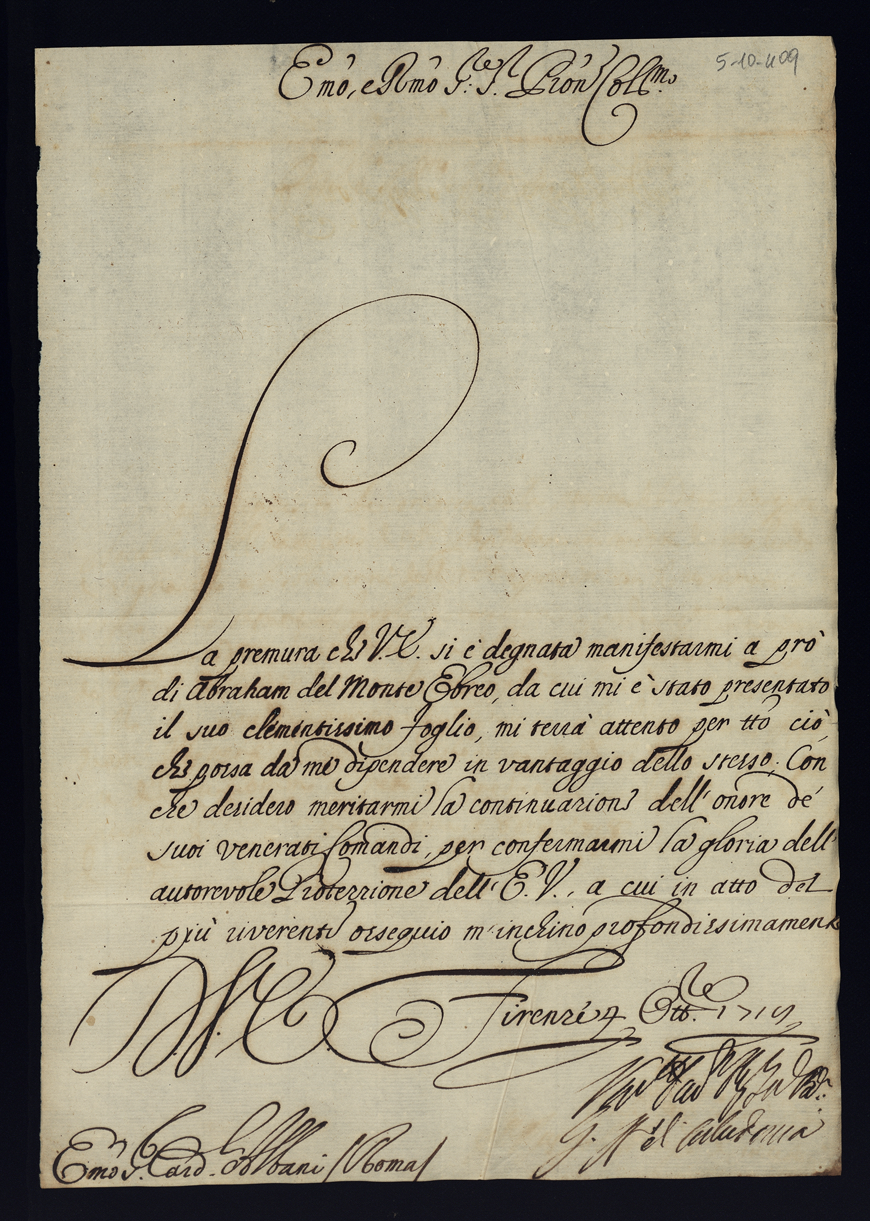 Emo, e Rmo Sre Sre Pron Collmo
5-10-409
La premura che V.E. si è degnata manifestarmi a prò
di Abraham del Monte Ebreo, da cui mi è stato presentato
il suo clementissimo foglio, mi terrà attento per tto ciò,
che possa da me dipendere in vantaggio dello stesso; Con
che desidero meritarmi la continuazione dell'onore de'
suoi venerati Comandi, per confermarmi la gloria dell'
autorevole Protezzione dell'E.V., a cui in atto del
più riverente ossequio m'inchino profondissimamente
D.V.E. Firenze 4 Ottre
Emo S. Card. Albani /Roma/